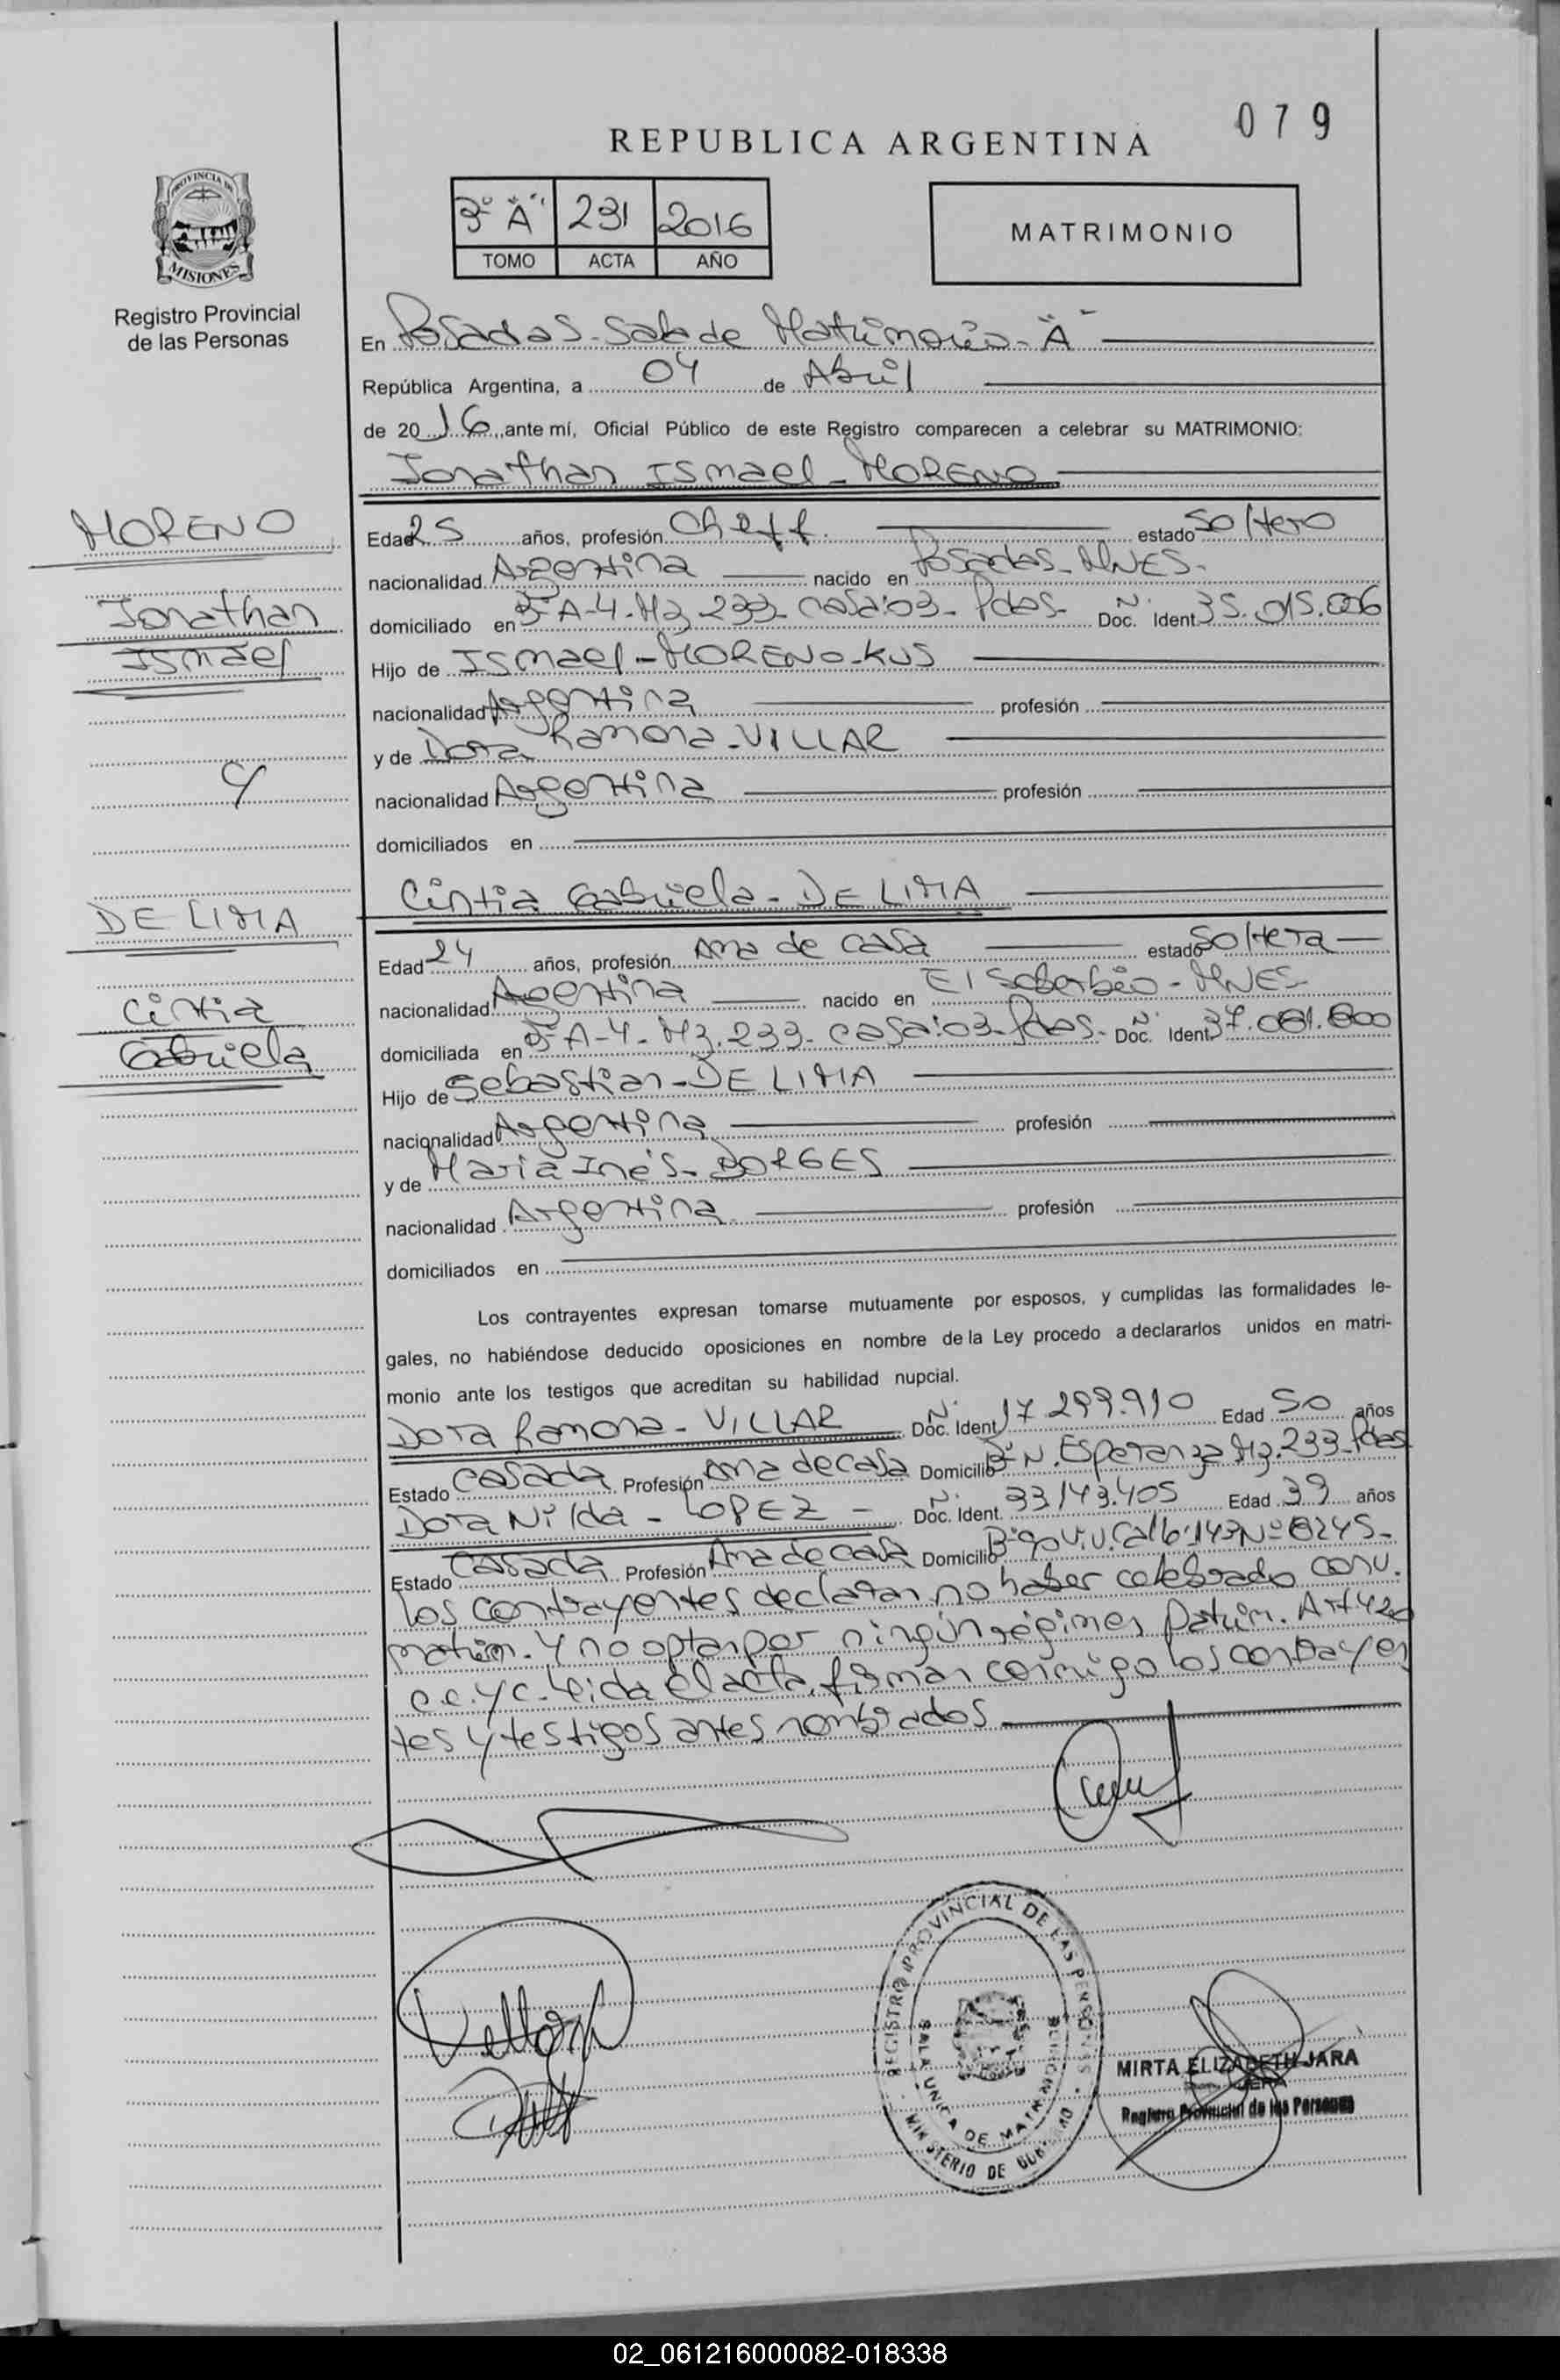 079
REPUBLICA ARGENTINA
PROVINCIA DE
MISIONES
Registro Provincial
de las Personas
3º "A" 231 2016
TOMO ACTA AÑO
MATRIMONIO
En Posadas - Sala de Matrimonio - "A"
República Argentina, a 04 de Abril
de 2016, ante mí, Oficial Público de este Registro comparecen a celebrar su MATRIMONIO:
Jonathan Ismael - MORENO
MORENO
Jonathan
Ismael
y
DE LIMA
Cintia
Gabriela
Edad 25 años, profesión Cheff. estado Soltero
nacionalidad Argentina nacido en Posadas - MNES.
domiciliado en Bº A-4 - Mz. 233 - casa: 03 - Pdas - Nº Doc. Ident. 35.015.006
Hijo de Ismael - MORENO - KUS
nacionalidad Argentina profesión
y de Dora Ramona - VILLAR
nacionalidad Argentina profesión
domiciliados en
Cintia Gabriela - DE LIMA
Edad 24 años, profesión Ama de casa estado Soltera
nacionalidad Argentina nacido en El Soberbio - MNES
domiciliada en Bº A-4 - Mz. 233 - casa: 03 - Pdas - Nº Doc. Ident. 37.081.800
Hijo de Sebastian - DE LIMA
nacionalidad Argentina profesión
y de Maria Inés - BORGES
nacionalidad Argentina profesión
domiciliados en
Los contrayentes expresan tomarse mutuamente por esposos, y cumplidas las formalidades le-
gales, no habiéndose deducido oposiciones en nombre de la Ley procedo a declararlos unidos en matri-
monio ante los testigos que acreditan su habilidad nupcial.
Dora Ramona - VILLAR Nº Doc. Ident. 17.299.910 Edad 50 años
Estado Casada Profesión Ama de casa Domicilio Bº N. Esperanza Mz. 233 - Pdas
Dora Nilda - LOPEZ - Nº Doc. Ident. 33.143.405 Edad 39 años
Estado Casada Profesión Ama de casa Domicilio Bº 90 Viv. Calle 143 Nº 8245 -
Los contrayentes declaran no haber celebrado conv.
matrim. y no optan por ningún régimen Patrim. Art 420
c.c.yc. Leida el acta, firman conmigo los contrayen
tes y testigos antes nombrados
REGISTRO PROVINCIAL DE LAS PERSONAS
SALA UNICA DE MATRIMONIO
MINISTERIO DE GOBIERNO
MIRTA ELIZABETH JARA
Registro Provincial de las Personas
02_061216000082-018338